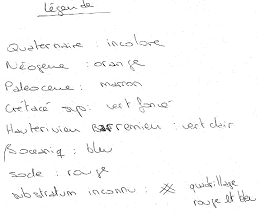 Légende
Quaternaire : incolore
Néogene : orange
Paleocene : marron
Crétacé sup : vert foncé
Hauterivien Barremien : vert clair
: bleu
socle : rouge
substratum inconnu : quadrillage
rouge et bleu